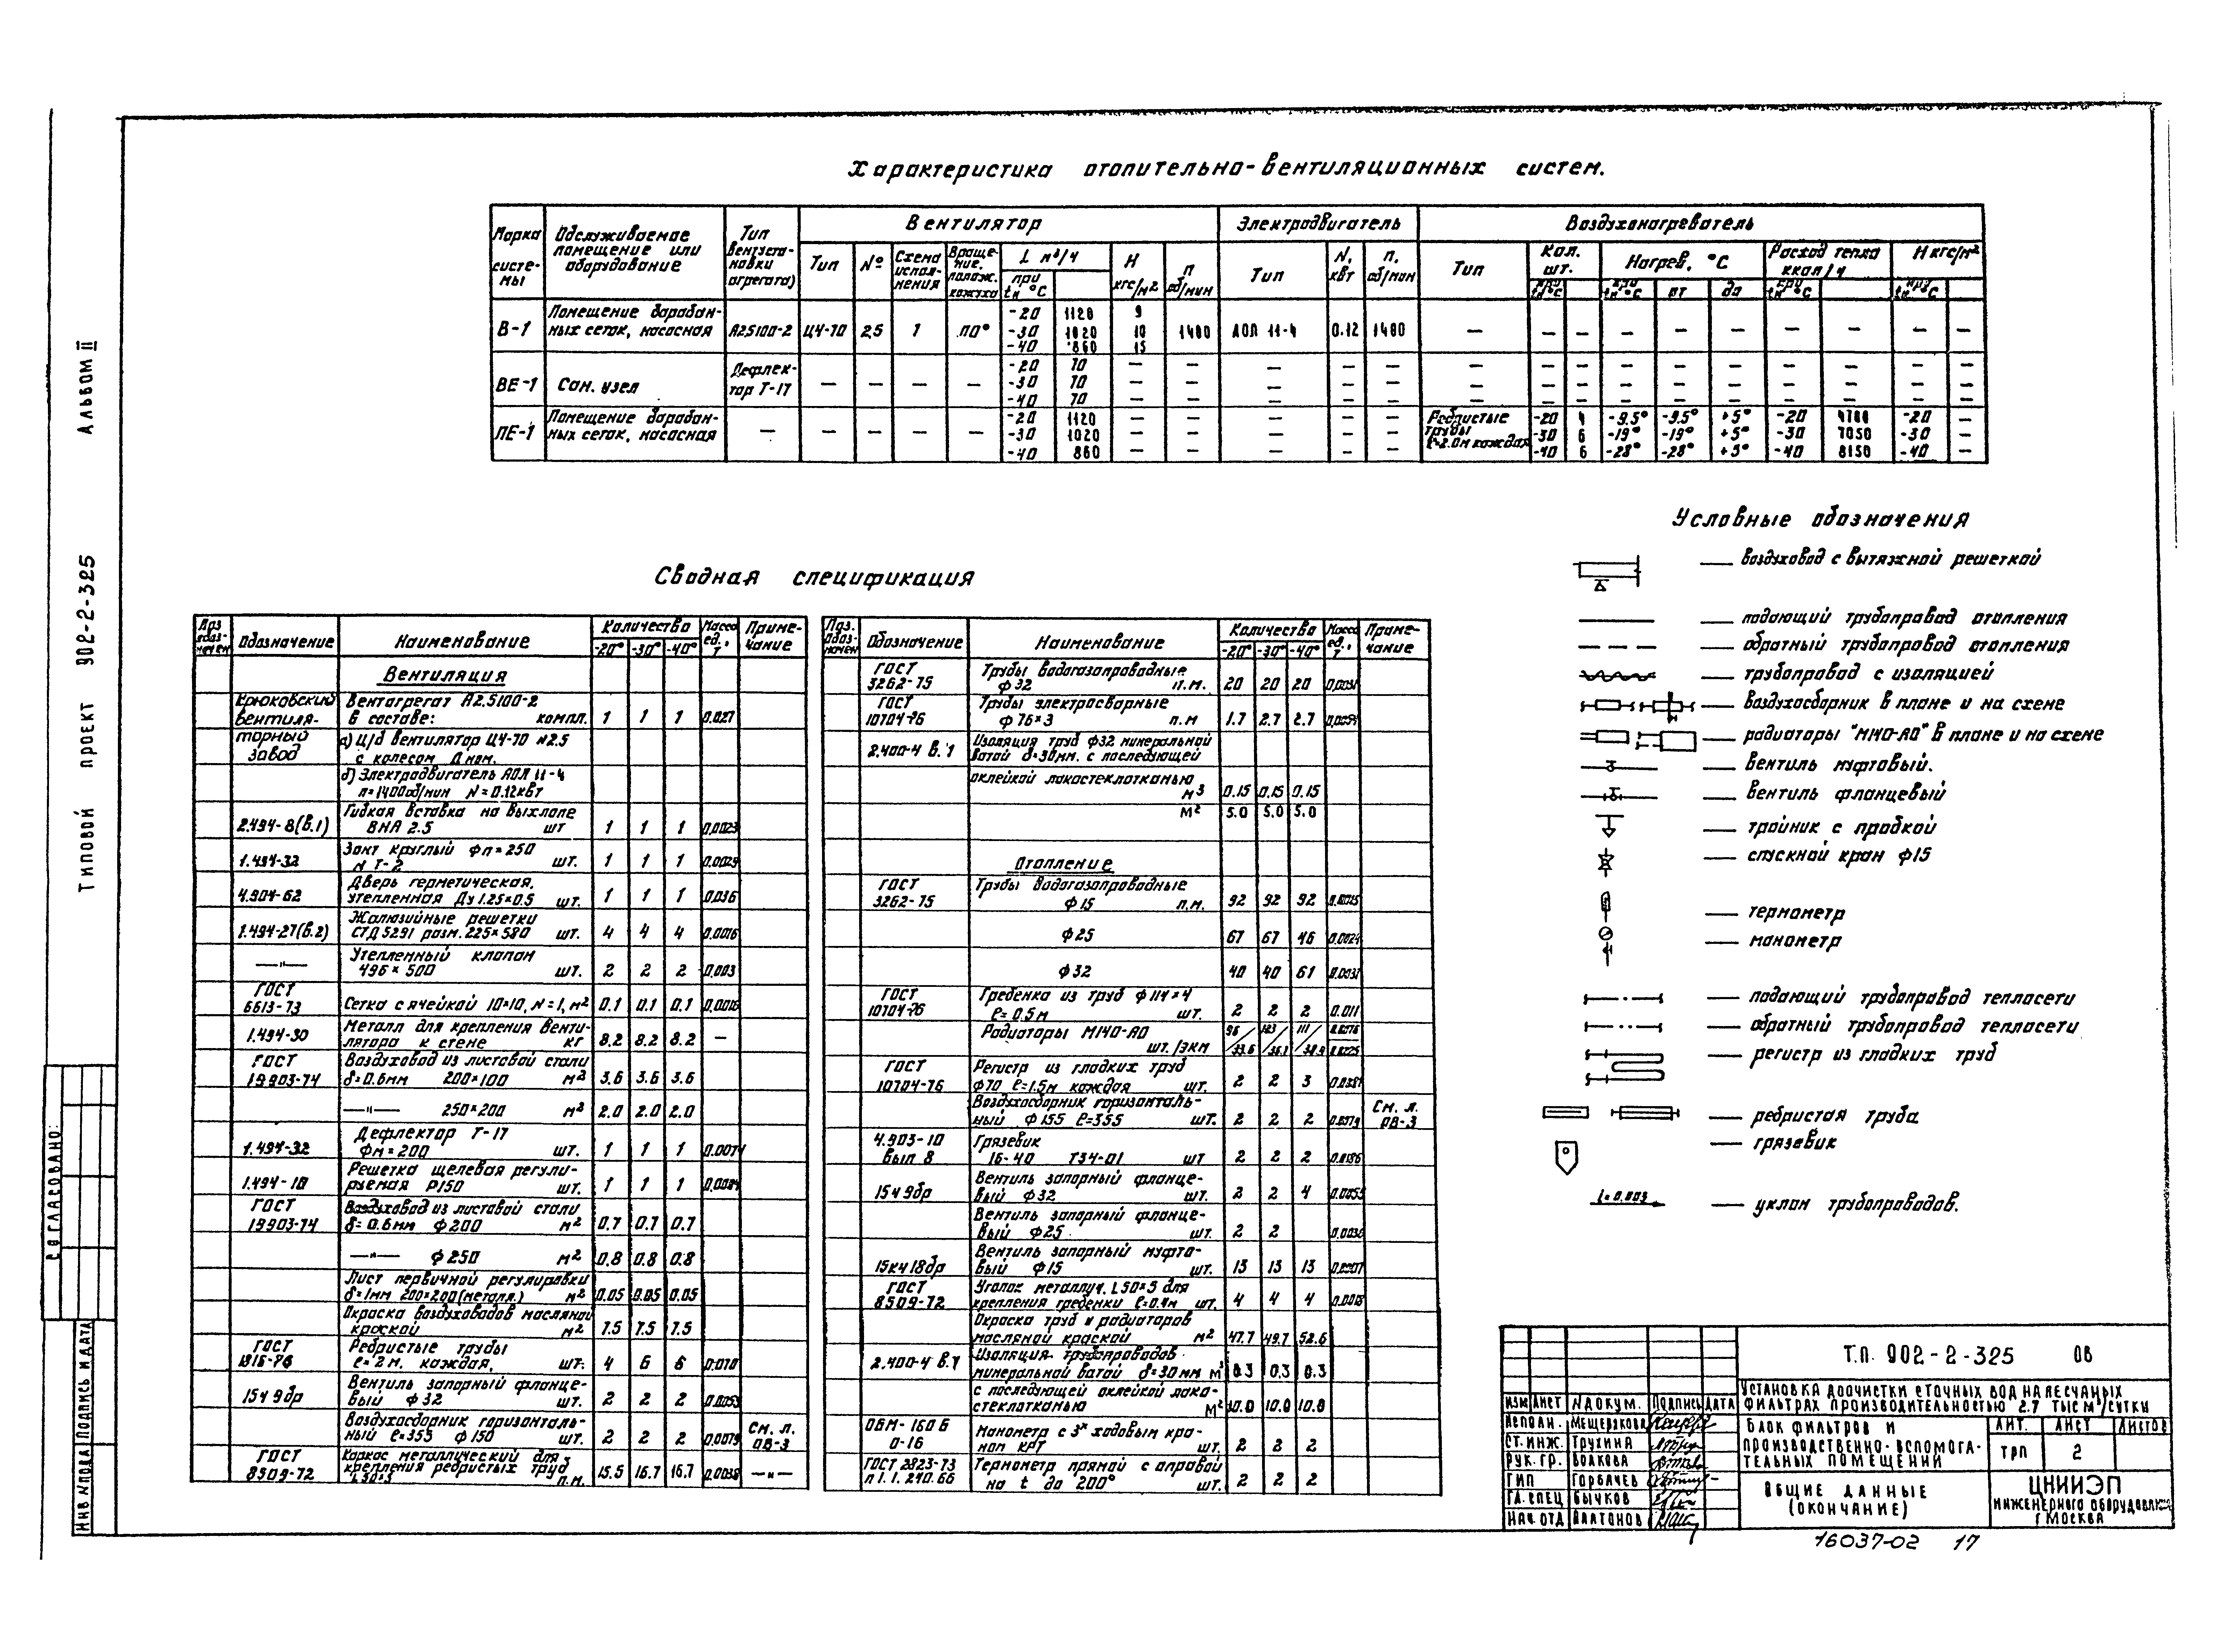 Характеристика отопительно-вентиляционных систем.
Марка системы
Обслуживаемое помещение или оборудование
Тип вентустановки (агрегата)
Вентилятор
Электродвигатель
Воздухонагреватель
Тип
№
Схема исполнения
Вращение, полож. кожуха
L м³/ч
при tн °C
H кгс/м²
n об/мин
Тип
N, кВт
n, об/мин
Тип
Кол. шт.
при tн °C
Нагрев, °C
при tн °C
от
до
Расход тепла ккал/ч
при tн °C
H кгс/м²
при tн °C
В-1 Помещение барабанных сеток, насосная А2.5100-2 Ц4-70 2.5 1 ЛО° 1400 АОЛ 11-4 0.12 1400 — — — — — — — — —
-20 1120 9
-30 1020 10
-40 860 15
ВЕ-1 Сан. узел Дефлектор Т-17 — — — —
-20 70 — — — — — — — — — — — — — —
-30 70 — — — — — — — — — — — — — —
-40 70 — — — — — — — — — — — — — —
ПЕ-1 Помещение барабанных сеток, насосная — — — — — Ребристые трубы ℓ=2.0м каждая
-20 1120 — — — — — -20 4 -9.5° -9.5° +5° -20 4700 -20 —
-30 1020 — — — — — -30 6 -19° -19° +5° -30 7050 -30 —
-40 860 — — — — — -40 6 -28° -28° +5° -40 8150 -40 —
Условные обозначения
— воздуховод с вытяжной решеткой
— подающий трубопровод отопления
— обратный трубопровод отопления
— трубопровод с изоляцией
— воздухосборник в плане и на схеме
— радиаторы "М140-АО" в плане и на схеме
— вентиль муфтовый.
— вентиль фланцевый
— тройник с пробкой
— спускной кран ф15
— термометр
— манометр
— подающий трубопровод теплосети
— обратный трубопровод теплосети
— регистр из гладких труб
— ребристая труба
— грязевик
i=0.003 — уклон трубопроводов.
Сводная спецификация
Поз. обозначен
Обозначение
Наименование
Количество
-20° -30° -40°
Масса ед., т
Примечание
Вентиляция
Крюковский Вентагрегат А2.5100-2
вентиля- в составе: компл. 1 1 1 0.027
торный а) Ц/б вентилятор Ц4-70 №2.5
завод с колесом Дном.
б) Электродвигатель АОЛ 11-4
n=1400об/мин N=0.12кВт
Гибкая вставка на выхлопе
2.494-8(в.1) ВНА 2.5 шт 1 1 1 0.0023
Зонт круглый фп=250
1.494-32 N Т-2 шт. 1 1 1 0.0029
Дверь герметическая,
4.904-62 утепленная Ду 1.25×0.5 шт. 1 1 1 0.036
Жалюзийные решетки
1.494-27(в.2) СТД 5291 разм. 225×580 шт. 4 4 4 0.0016
Утепленный клапан
—"— 496×500 шт. 2 2 2 0.003
ГОСТ
6613-73 Сетка с ячейкой 10×10, N=1, м² 0.1 0.1 0.1
Металл для крепления венти-
1.494-30 лятора к стене кг 8.2 8.2 8.2 —
ГОСТ Воздуховод из листовой стали
19903-74 δ=0.6мм 200×100 м² 3.6 3.6 3.6
—"— 250×200 м² 2.0 2.0 2.0
Дефлектор Т-17
1.494-32 Фм=200 шт. 1 1 1 0.0074
Решетка щелевая регули-
1.494-10 руемая Р150 шт. 1 1 1
ГОСТ Воздуховод из листовой стали
19903-74 δ=0.6мм ф200 м² 0.7 0.7 0.7
—"— ф250 м² 0.8 0.8 0.8
Лист первичной регулировки
δ=1мм 200×200(металл.) м² 0.05 0.05 0.05
Окраска воздуховодов масляной
краской м² 7.5 7.5 7.5
ГОСТ Ребристые трубы
1816-76 ℓ=2м, каждая, шт. 4 6 6 0.070
Вентиль запорный фланце-
15ч 9бр вый ф32 шт. 2 2 2
Воздухосборник горизонталь-
ный ℓ=355 ф150 шт. 2 2 2 0.0079 См. л. ОВ-3
ГОСТ Каркас металлический для
8509-72 крепления ребристых труб
∟50×5 п.м. 15.5 16.7 16.7 0.0038 —"—
Поз. обознач
Обозначение
Наименование
Количество
-20° -30° -40°
Масса ед., т
Примечание
ГОСТ Трубы водогазопроводные
3262-75 ф32 п.м. 20 20 20 0.0031
ГОСТ Трубы электросварные
10704-76 ф76×3 п.м 1.7 2.7 2.7 0.0054
Изоляция труб ф32 минеральной
2.400-4 в.1 ватой δ=30мм. с последующей
оклейкой лакостеклотканью
м³ 0.15 0.15 0.15
м² 5.0 5.0 5.0
Отопление
ГОСТ Трубы водогазопроводные
3262-75 ф15 п.м. 92 92 92
ф25 67 67 46 0.0024
ф32 40 40 61 0.0031
ГОСТ Гребенка из труб ф114×4
10704-76 ℓ=0.5м шт. 2 2 2 0.011
Радиаторы М140-АО 96 103 111 0.0076
шт./экм 33.6 36.1 38.9
ГОСТ Регистр из гладких труб
10704-76 ф70 ℓ=1.5м каждая шт. 2 2 3
Воздухосборник горизонталь-
ный ф155 ℓ=355 шт. 2 2 2 0.0079 См. л. ОВ-3
4.903-10 Грязевик
вып 8 16-40 Т34-01 шт 2 2 2
Вентиль запорный фланце-
15ч 9бр вый ф32 шт. 2 2 4
Вентиль запорный фланце-
вый ф25 шт. 2 2
Вентиль запорный муфто-
15кч18бр вый ф15 шт. 13 13 13 0.0007
ГОСТ Уголок металлич. ∟50×5 для
8509-72 крепления гребенки ℓ=0.4м шт. 4 4 4
Окраска труб и радиаторов
масляной краской м² 47.7 49.7 52.6
Изоляция трубопроводов
2.400-4 в.1 минеральной ватой δ=30мм м³ 0.3 0.3 0.3
с последующей оклейкой лако-
стеклотканью м² 10.0 10.0 10.0
ОБМ-160 Б Манометр с 3х ходовым кра-
0-16 ном КРТ шт. 2 2 2
ГОСТ 2823-73 Термометр прямой с оправой
п 1.1.240.66 на t до 200° шт. 2 2 2
Т.П. 902-2-325 ОВ
Установка доочистки сточных вод на песчаных
фильтрах производительностью 2.7 тыс м³/сутки
Изм Лист N докум. Подпись Дата
Исполн. Мещерякова
Ст. инж. Трухина
Рук. гр. Волкова
ГИП Горбачев
Гл. спец Бычков
Нач. отд Платонов
Блок фильтров и
производственно-вспомога-
тельных помещений
Лит. Лист Листов
ТРП 2
Общие данные
(окончание)
ЦНИИЭП
инженерного оборудования
г Москва
16037-02 17
Альбом II
Типовой проект 902-2-325
Согласовано:
Инв N подл Подпись и дата